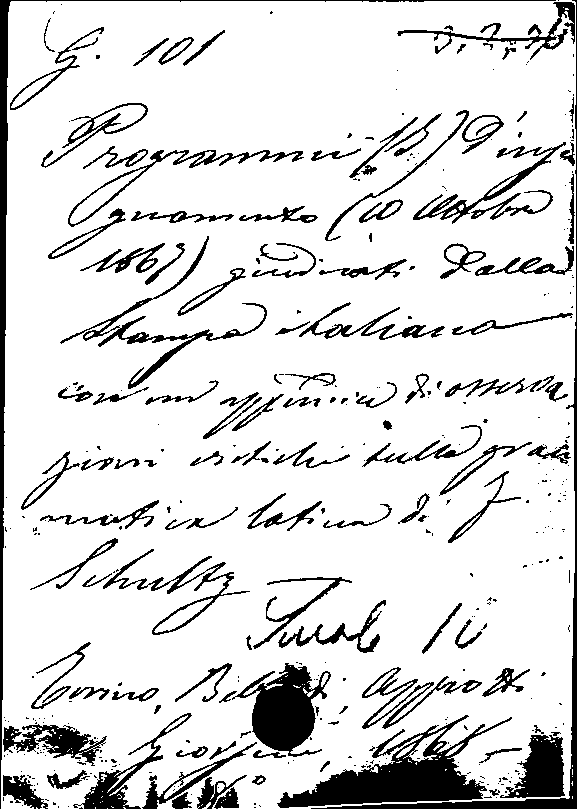 G. 101 3.2.36
Programmi (I) d'inse
gnamento (10 Ottobre
1867) giudicati dalla
stampa italiana
con un appendice di osserva
zioni critiche sulla gram
matica latina di J.
Schultz
10
Torino, Appiotti
1868
8°